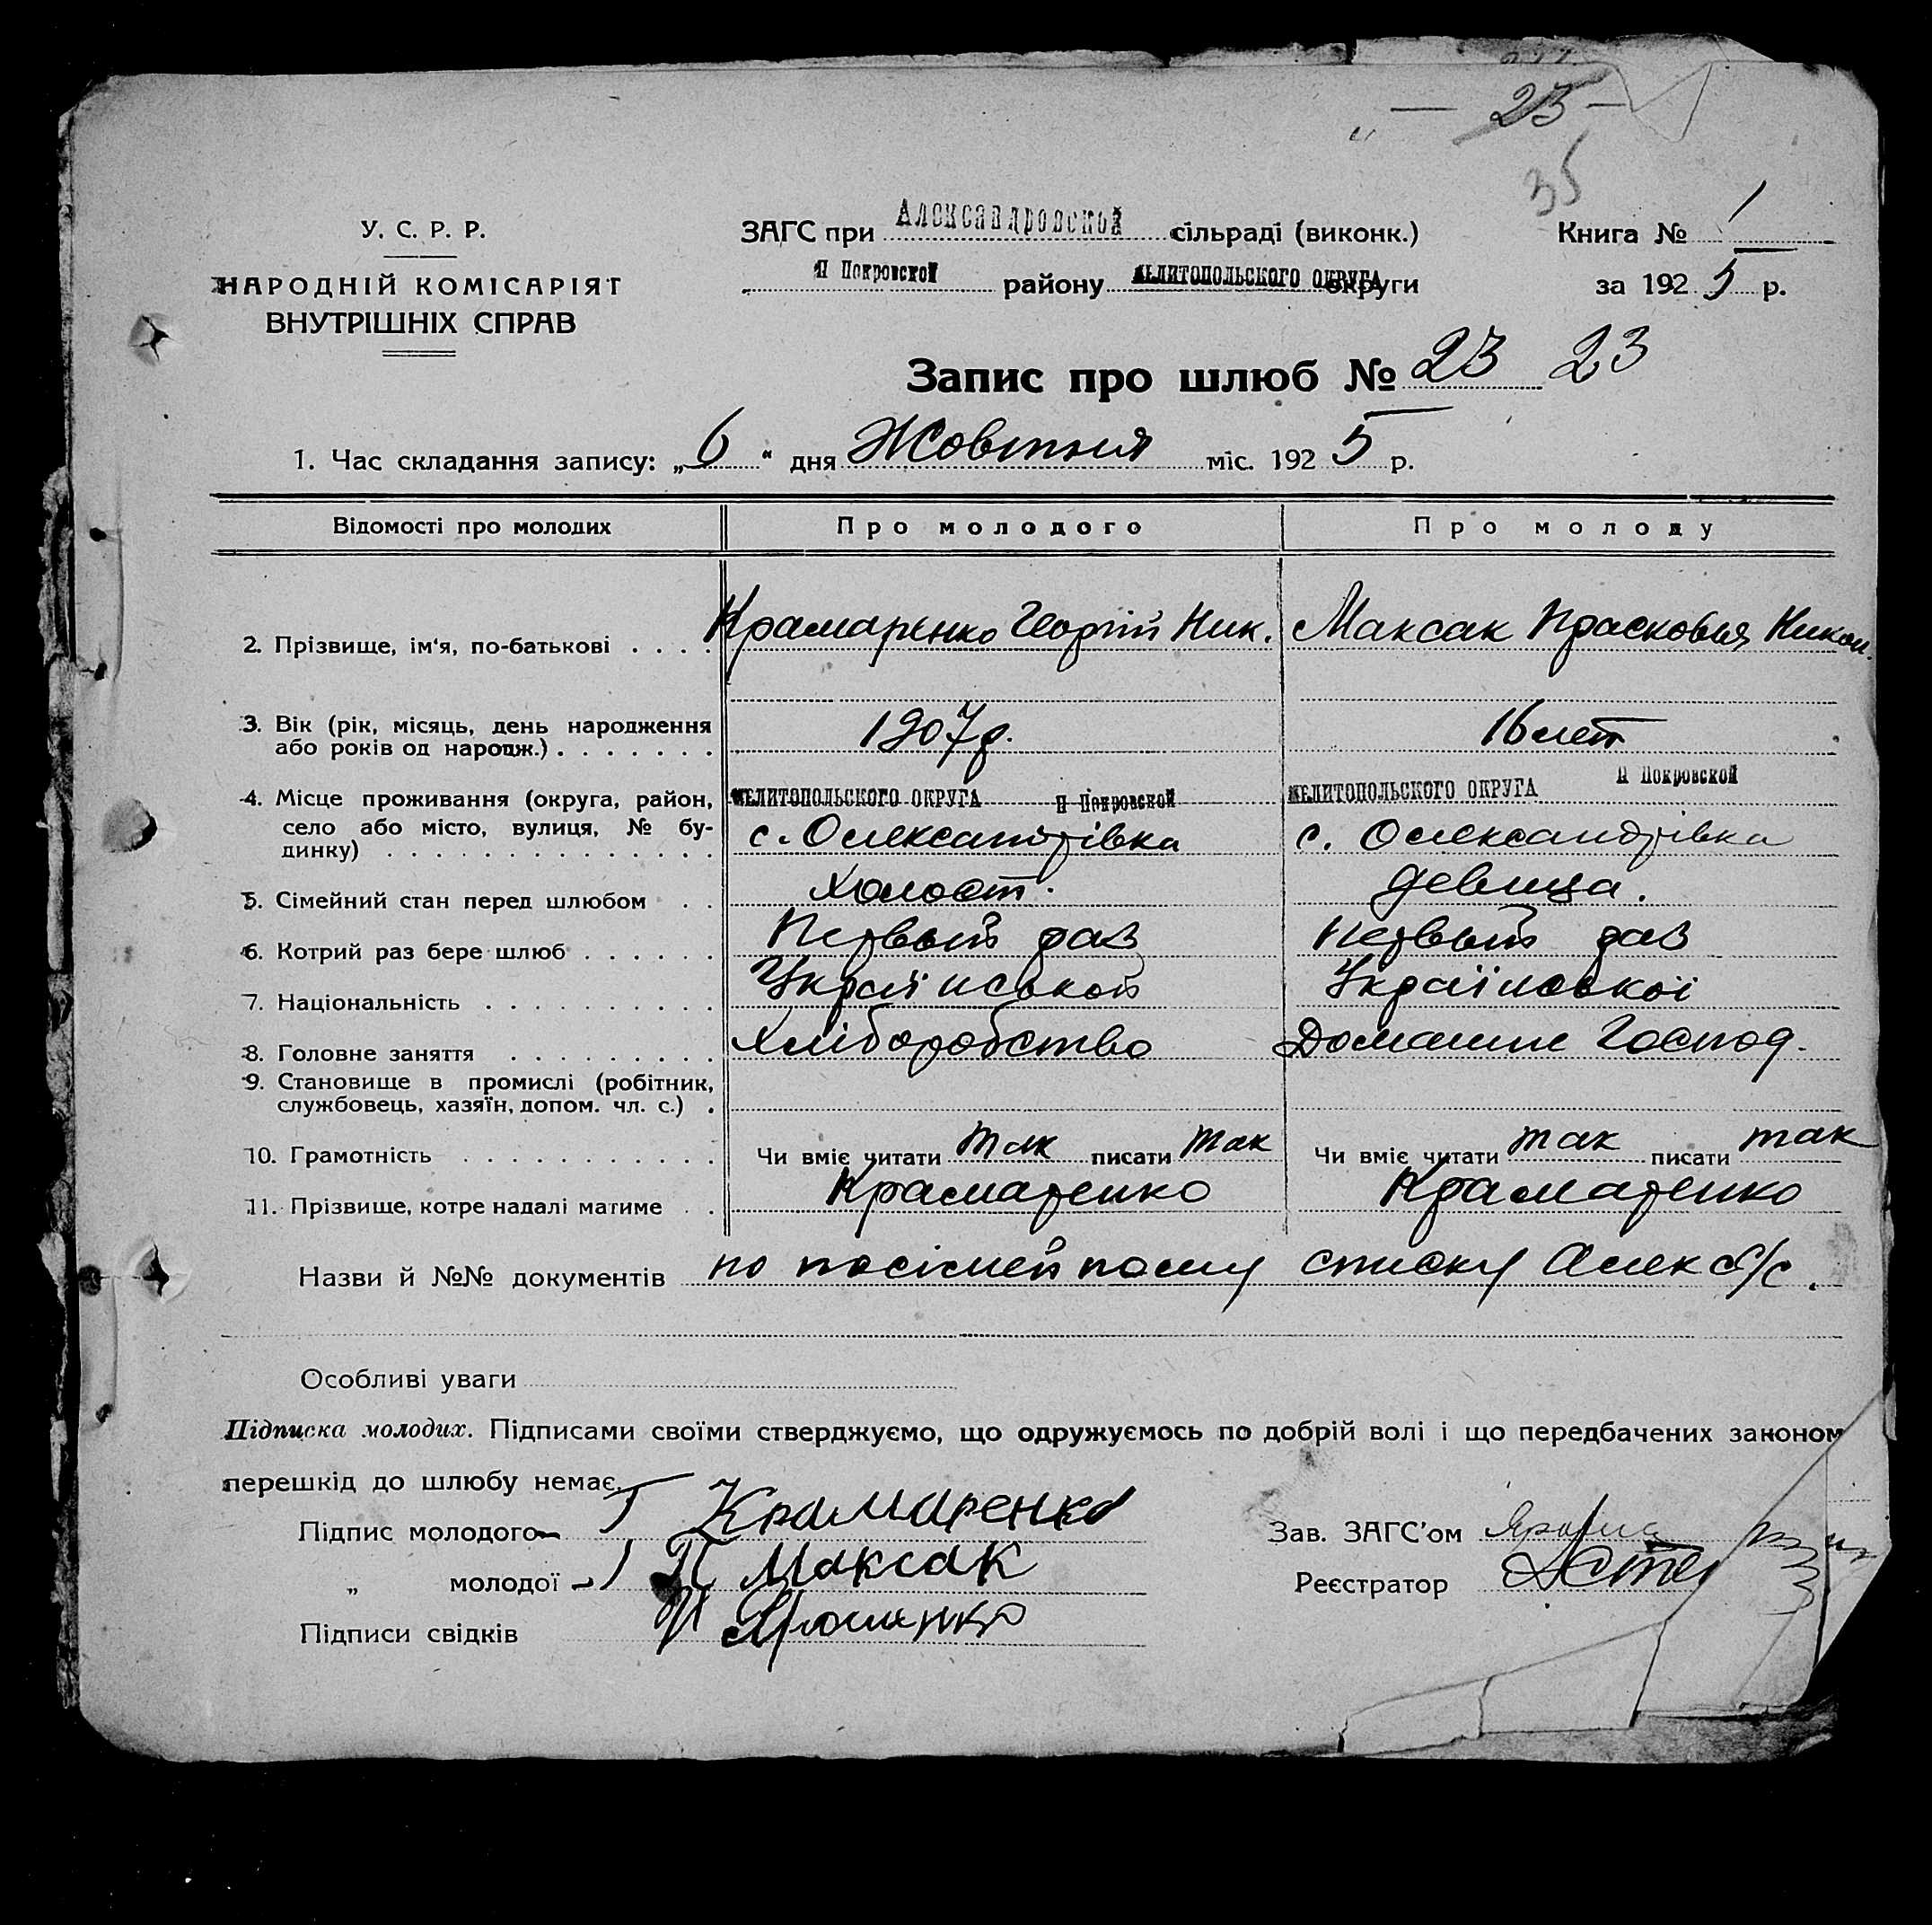 23
35
У. С. Р. Р.
НАРОДНІЙ КОМІСАРІЯТ
ВНУТРІШНІХ СПРАВ
ЗАГС при Александровской сільраді (виконк.)
Н Покровской району МЕЛИТОПОЛЬСКОГО ОКРУГА округи
Книга № 1
за 1925 р.
Запис про шлюб № 23 23
1. Час складання запису: „6“ дня Жовтня міс. 1925 р.
Відомості про молодих Про молодого Про молоду
2. Прізвище, ім'я, по-батькові . . . . Крамаренко Георгій Ник. Максак Прасковья Никол.
3. Вік (рік, місяць, день народження
або років од народж.) . . . . . . . 1907 р. 16 лет
4. Місце проживання (округа, район, МЕЛИТОПОЛЬСКОГО ОКРУГА Н Покровской МЕЛИТОПОЛЬСКОГО ОКРУГА Н Покровской
село або місто, вулиця, № бу-
динку) . . . . . . . . . . . . . . с. Олександрівка с. Олександрівка
5. Сімейний стан перед шлюбом . . Холост. девица.
6. Котрий раз бере шлюб . . . . . . Первый раз Первый раз
7. Національність . . . . . . . . . . Української Української
8. Головне заняття . . . . . . . . . Хліборобство Домашнє Господ.
9. Становище в промислі (робітник,
службовець, хазяїн, допом. чл. с.) .
10. Грамотність . . . . . . . . . . . Чи вміє читати так писати так Чи вміє читати так писати так
11. Прізвище, котре надалі матиме . . Крамаренко Крамаренко
Назви й №№ документів по посімейному списку Алек с/с.
Особливі уваги
Підписка молодих. Підписами своїми стверджуємо, що одружуємось по добрій волі і що передбачених законом
перешкід до шлюбу немає.
Підпис молодого Г Крамаренко
„ молодої П Максак
Підписи свідків
Зав. ЗАГС'ом
Реєстратор